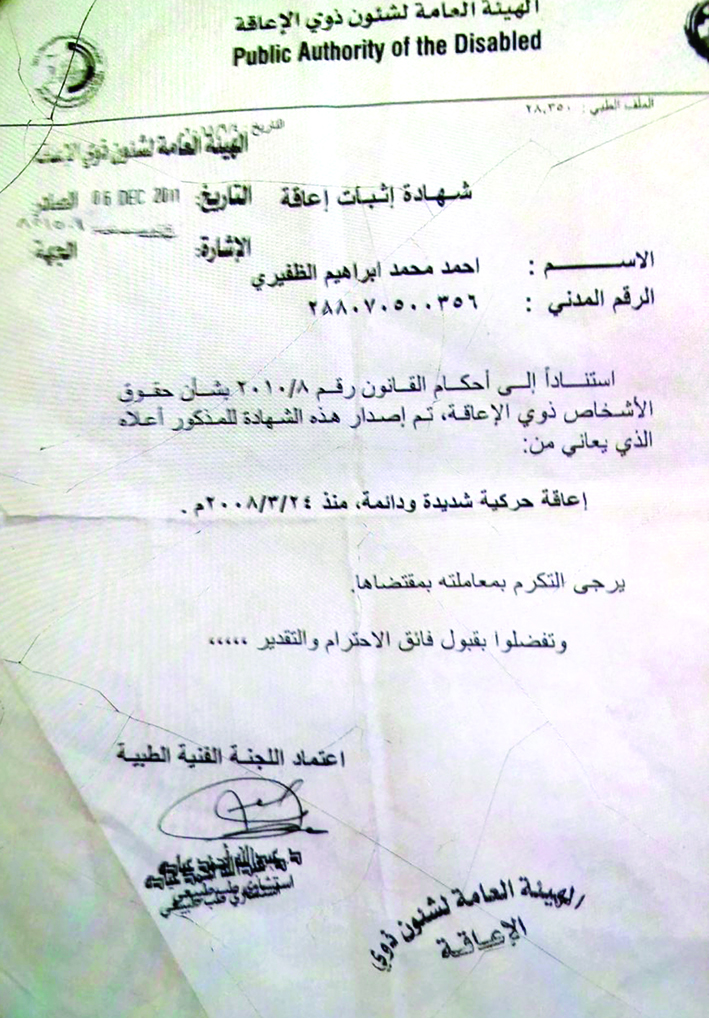 الهيئة العامة لشئون ذوي الإعاقة
Public Authority of the Disabled
الملف الطبي : ٢٨,٣٥٠
التاريخ
الهيئة العامة لشئون ذوي الإعاقة
شهادة إثبات إعاقة
التاريخ: 06 DEC 2011 الصادر
الإشارة: الجهة
الاســـــم : احمد محمد ابراهيم الظفيري
الرقم المدني : ٢٨٨٠٧٠٥٠٠٣٥٦
استنــاداً إلى أحكـام القـانون رقـم ٢٠١٠/٨ بشـأن حقـوق
الأشخاص ذوي الإعاقة، تم إصدار هذه الشهادة للمذكور أعلاه
الذي يعاني من:
إعاقة حركية شديدة ودائمة، منذ ٢٠٠٨/٣/٢٤م .
يرجى التكرم بمعاملته بمقتضاها.
وتفضلوا بقبول فائق الاحترام والتقدير ،،،،،
اعتماد اللجنة الفنية الطبية
الهيئة العامة لشئون ذوي
الإعاقة